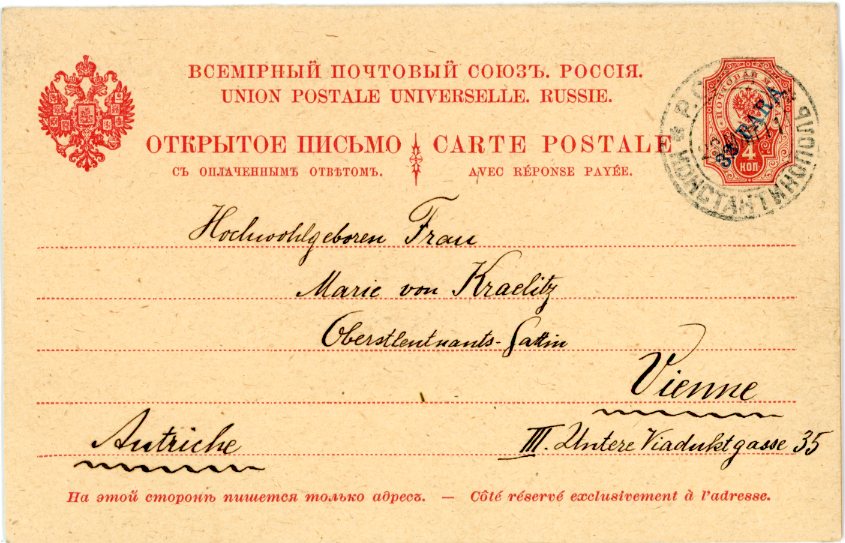 ВСЕМІРНЫЙ ПОЧТОВЫЙ СОЮЗЪ. РОССІЯ.
UNION POSTALE UNIVERSELLE. RUSSIE.
ОТКРЫТОЕ ПИСЬМО CARTE POSTALE
СЪ ОПЛАЧЕННЫМЪ ОТВѢТОМЪ. AVEC RÉPONSE PAYÉE.
ПОЧТОВАЯ
PARA
4
КОП
КОНСТАНТИНОПОЛЬ
Hochwohlgeboren Frau
Marie von Kraelitz
Oberstleutnants-Gattin
Vienne
Autriche III. Untere Viaduktgasse 35
На этой сторонѣ пишется только адресъ. — Côté réservé exclusivement à l'adresse.